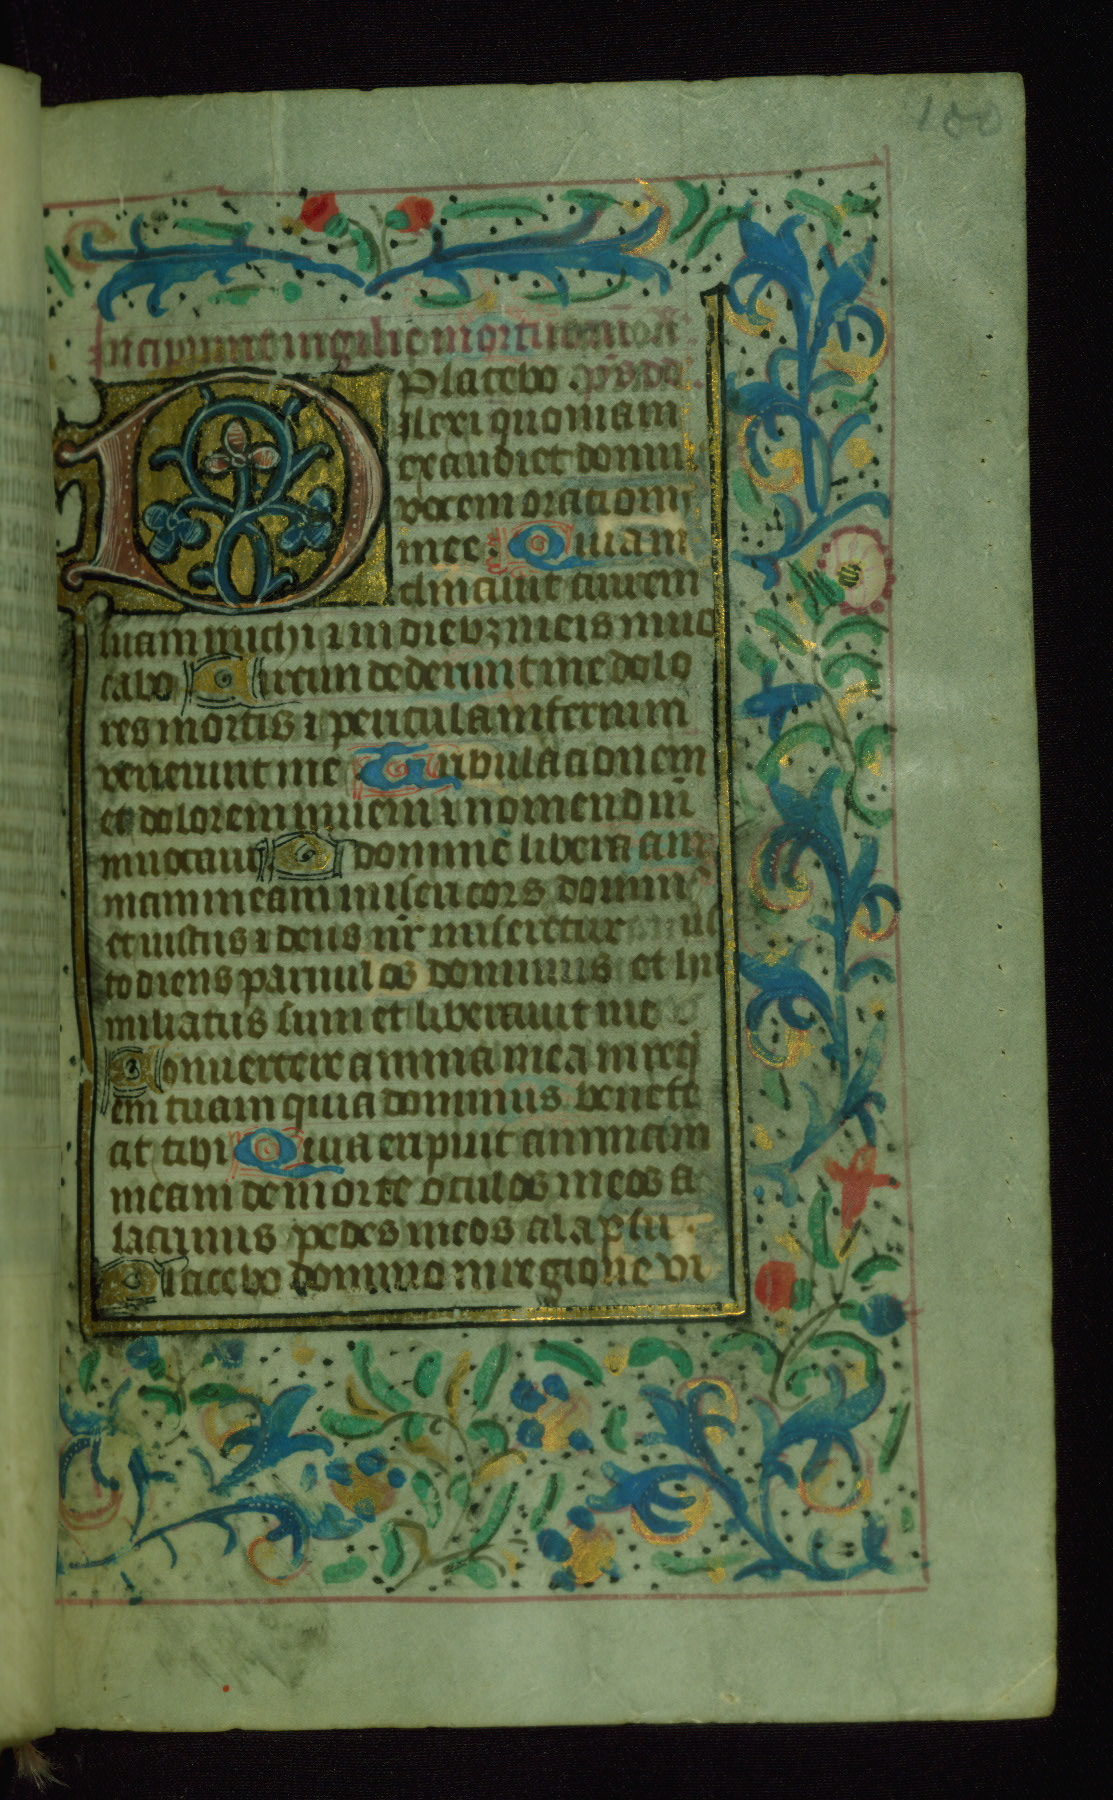 100
Incipiunt vigilie mortuorum
Placebo ps dd
Dilexi quoniam
exaudiet domin
vocem orationis
mee Quia in
clinauit aurem
suam michi ⁊ in diebꝫ meis inuo
cabo Circundederunt me dolo
res mortis ⁊ pericula infernum
venerunt me Tribulacionem
et dolorem inueni ⁊ nomen dn̄i
inuocaui O domine libera ani
mam meam misericors domin
et iustus ⁊ deus nr̄ miseretur us
todiens paruulos dominus et hu
miliatus sum et liberauit me
Conuertere anima mea in requi
em tuam quia dominus benefe
cit tibi Quia eripuit animam
meam de morte oculos meos a
lacrimis pedes meos a lapsu
Placebo domino in regione vi